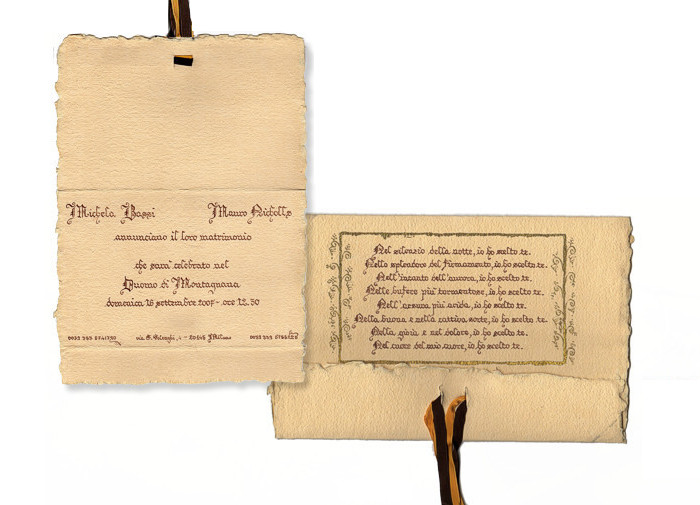 Michela Bassi Mauro Nicholls
annunciano il loro matrimonio
che sara' celebrato nel
Duomo di Montagnana
domenica 16 settembre 2007 - ore 12.30
via 20145 Milano
Nel silenzio della notte, io ho scelto te.
Nello splendore del firmamento, io ho scelto te.
Nell'incanto dell'aurora, io ho scelto te.
Nelle bufere piu' tormentose, io ho scelto te.
Nell'arsura piu' arida, io ho scelto te.
Nella buona e nella cattiva sorte, io ho scelto te.
Nella gioia e nel dolore, io ho scelto te.
Nel cuore del mio cuore, io ho scelto te.